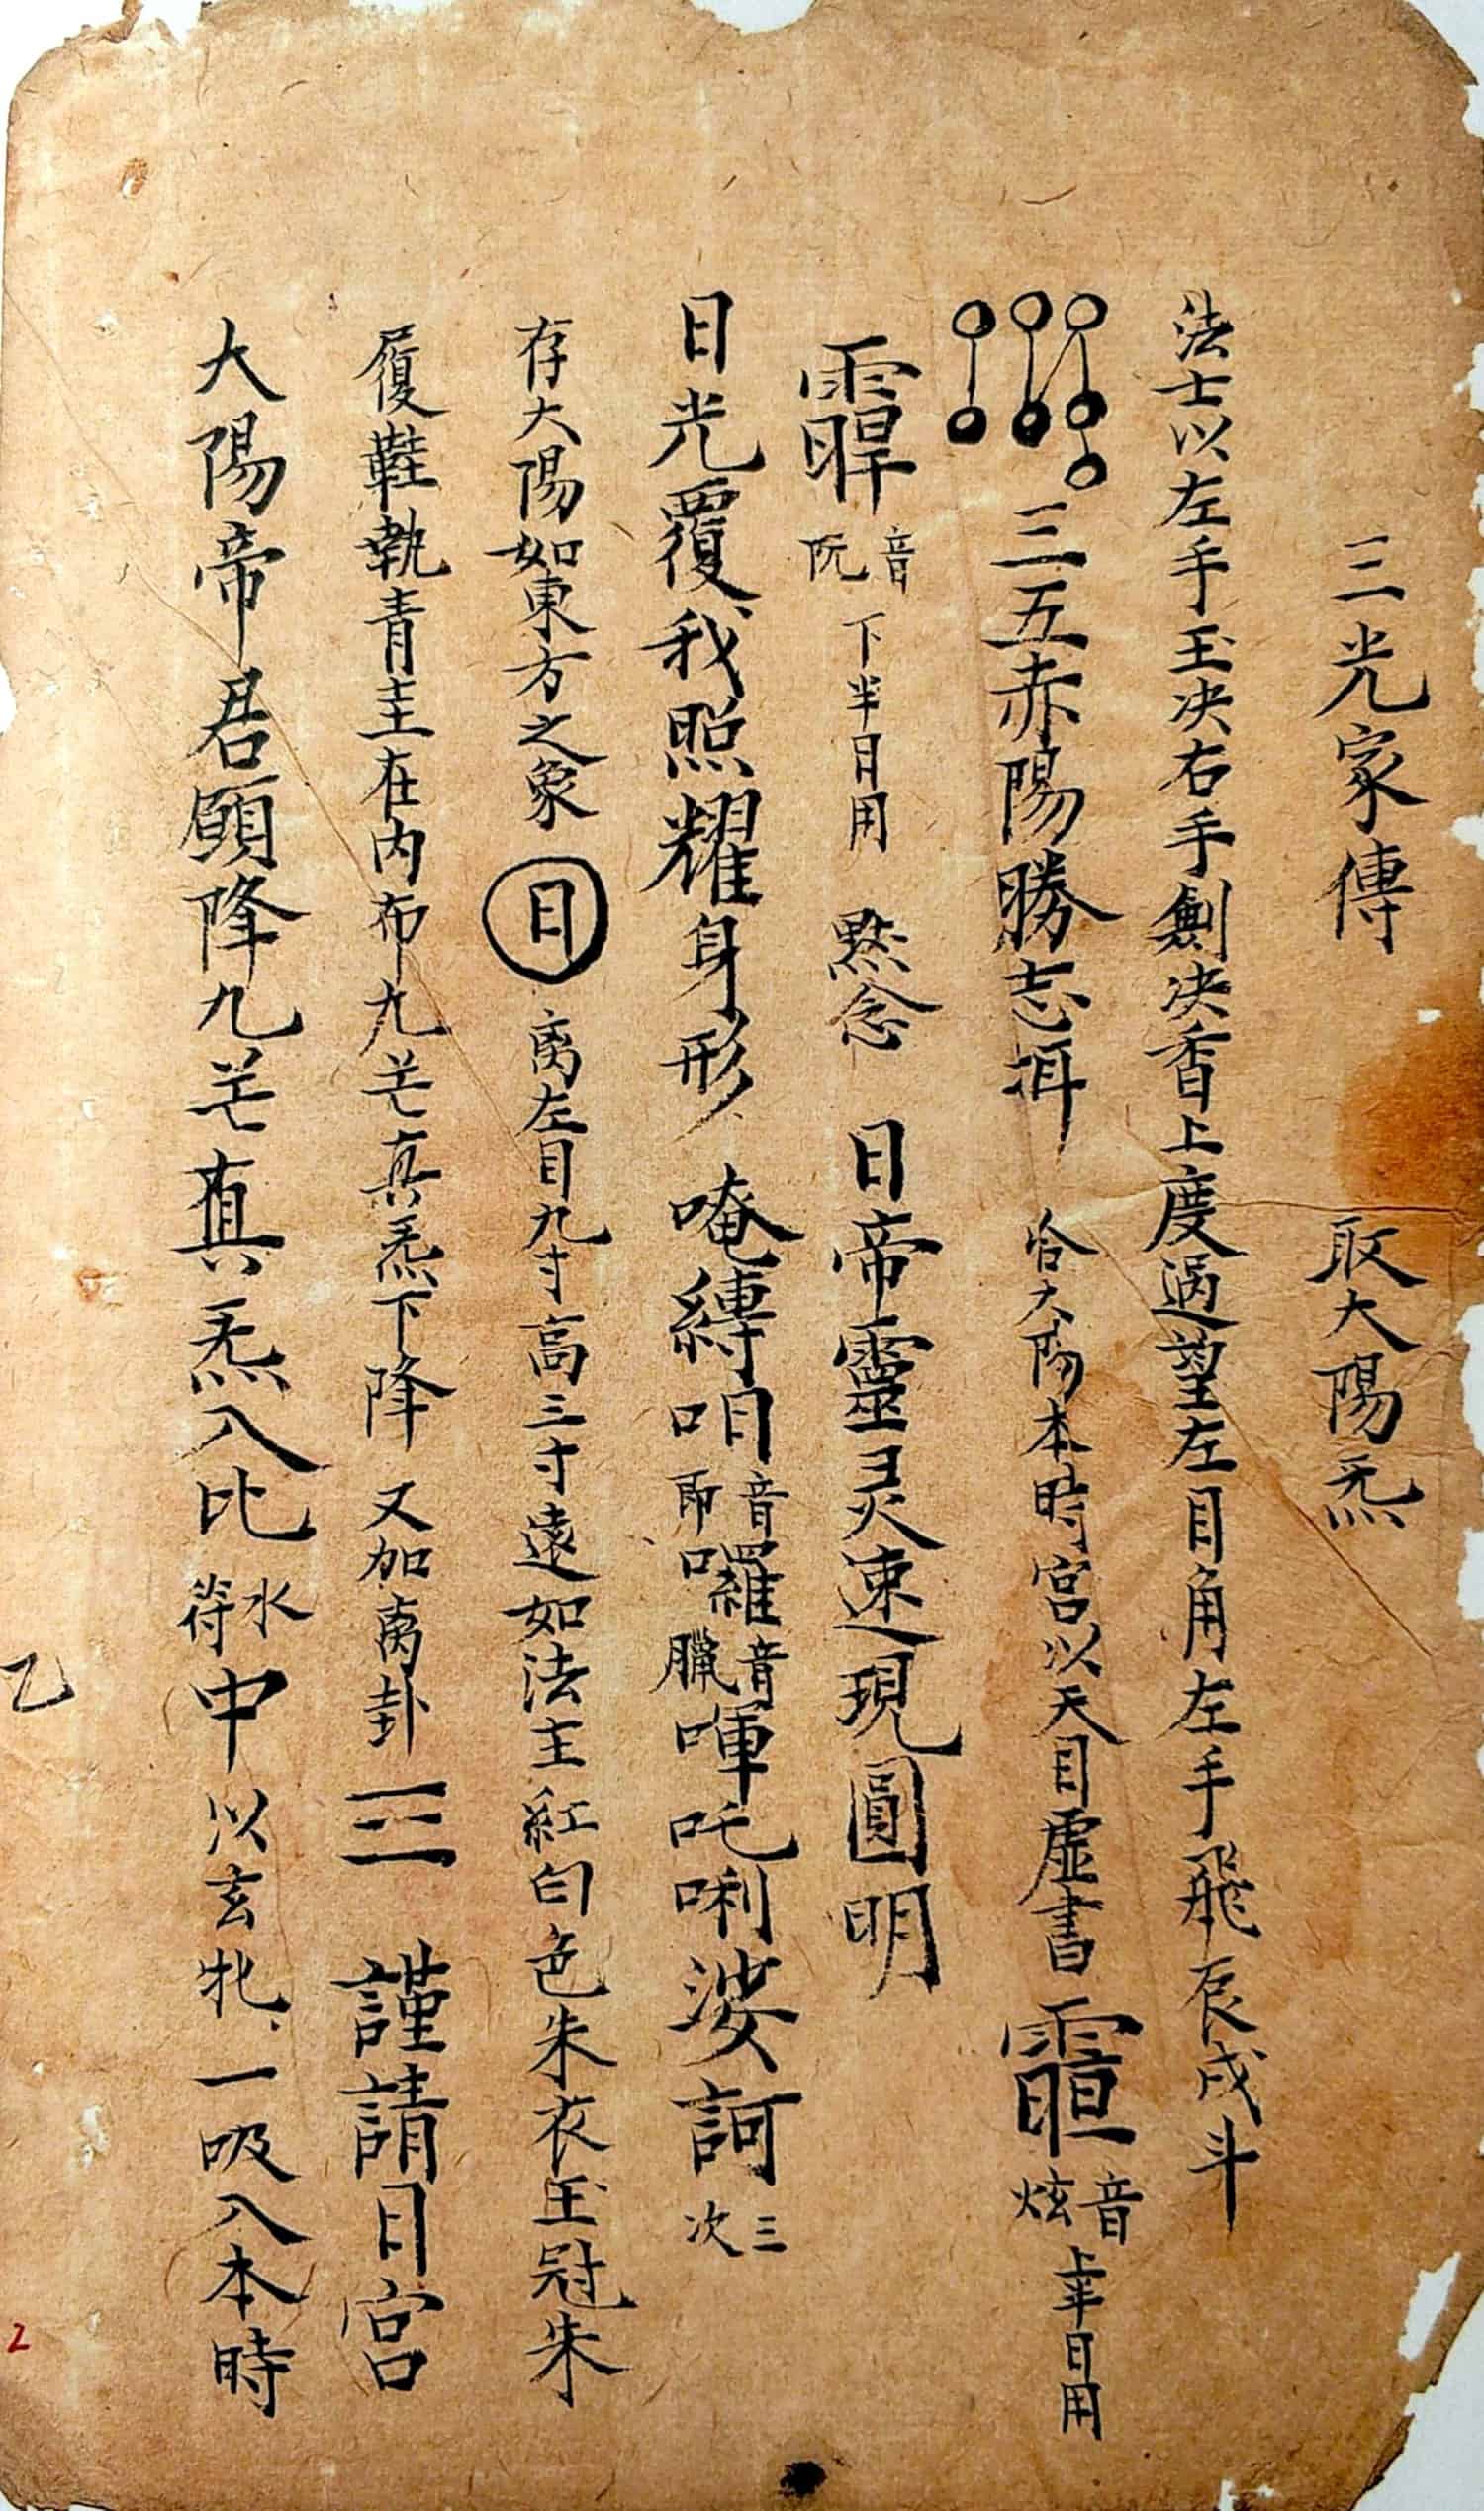 三光家傳 取大陽炁
法士以左手玉决右手劍决香上度過望左目角左手飛辰戌斗
三五赤陽勝志 合大陽本時宮以天目虛書 音炫 上半日用
音阮 下半日用 黙念 日帝靈灵速現圓明
日光覆我照耀身形 唵縛呬音即囉音臘喗吒唎娑訶 三次
存大陽如東方之象 日 离左目九寸高三寸遠如法主紅白色朱衣玉冠朱
履鞋執青圭在内布九芒真炁下降 又加离卦 ☲ 謹請日宮
大陽帝君願降九芒真炁入比水符中 以玄牝、一吸入本時
乙
2